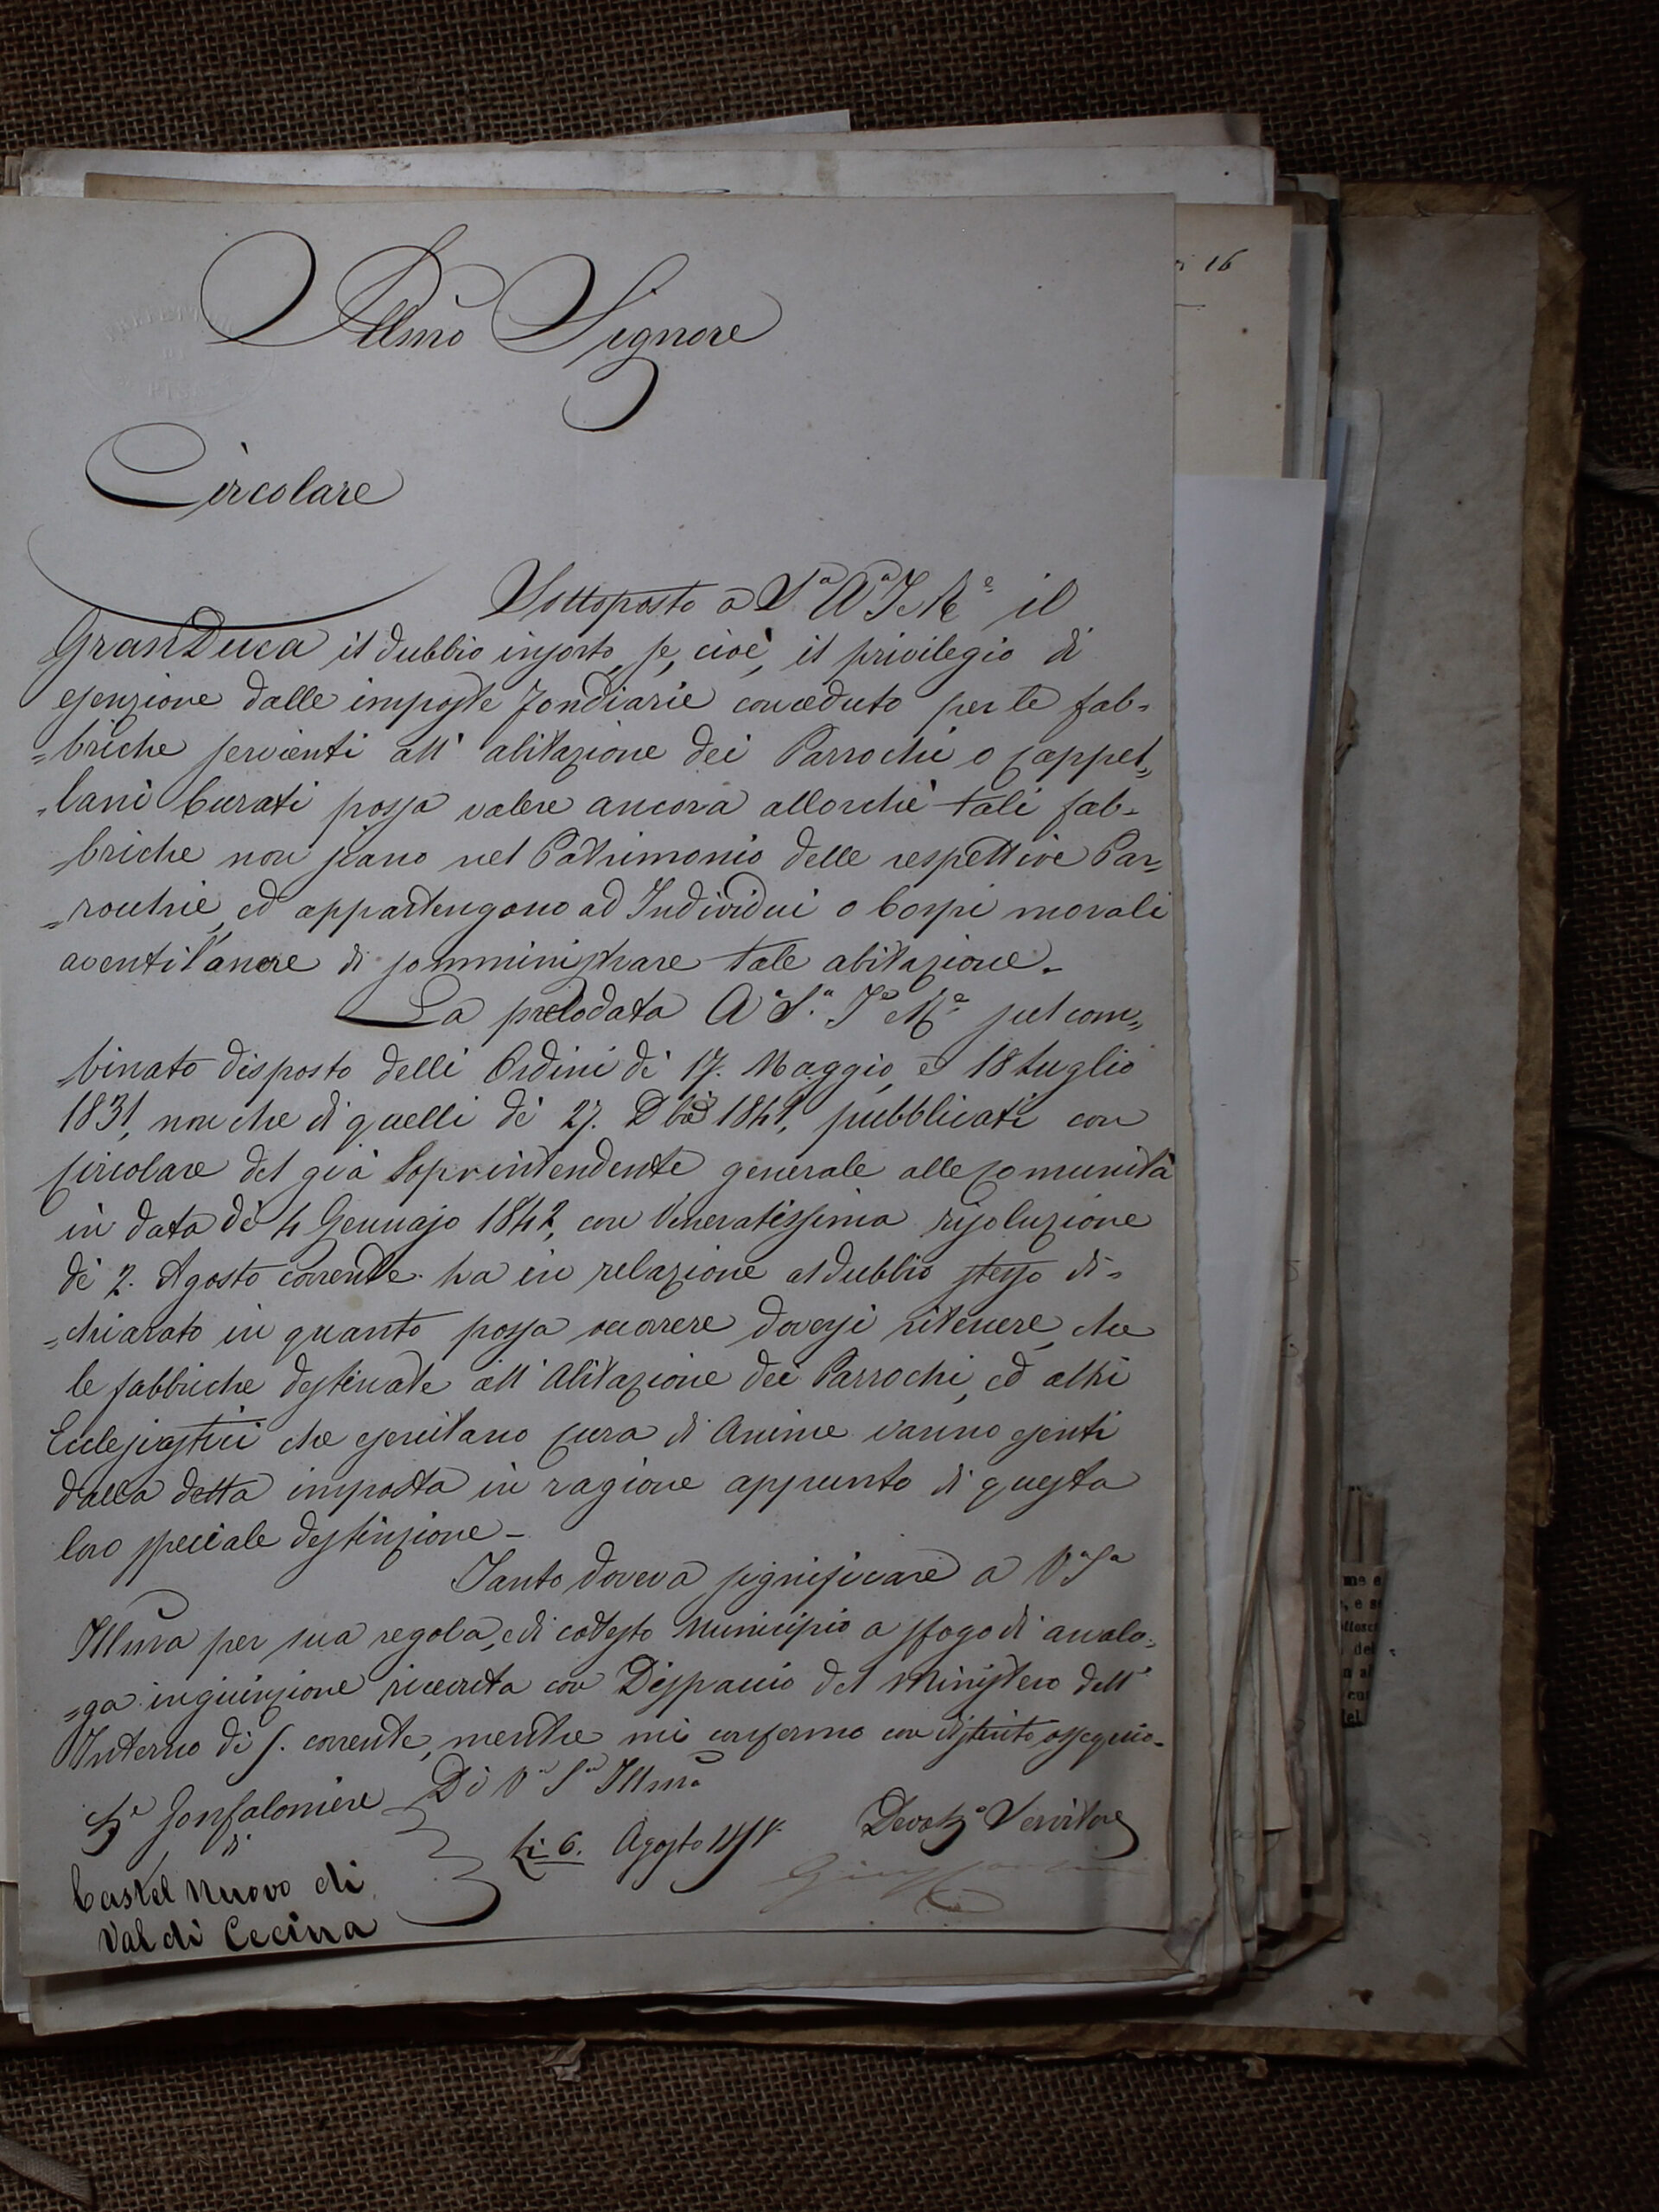 PREFETTURA
DI
PISA
Illmo Signore
Circolare
Sottoposto a S.a A.a I. e R.e il
GranDuca il dubbio insorto, se, cioè, il privilegio di
esenzione dalle imposte fondiarie conceduto per le fab=
=briche servienti all' abitazione dei Parrochi o Cappel=
=lani Curati possa valere ancora allorchè tali fab=
briche non siano nel Patrimonio delle respettive Par=
=rocchie, ed appartengono ad Individui o Corpi morali
aventi l'onere di somministrare tale abitazione.
La prelodata A.a S.a I.e R.e sul com=
binato disposto delli Ordini di 17. Maggio, e 18 Luglio
1831, non che di quelli de 27. Dbre 1841, pubblicati con
Circolare del già Soprintendente generale alle Comunità
in data de 4 Gennajo 1842, con Veneratissima risoluzione
de 2. Agosto corrente ha in relazione al dubbio stesso di=
=chiarato in quanto possa occorrere, doversi ritenere, che
le fabbriche destinate all' Abitazione dei Parrochi, ed altri
Ecclesiastici che esercitano cura di Anime vanno esenti
dalla detta imposta in ragione appunto di questa
loro speciale destinzione –
Tanto doveva significare a V.a S.a
Illma per sua regola, e di codesto Municipio a sfogo di analo=
=ga inguinzione ricevuta con Dispaccio del Ministero dell'
Interno di 5. corrente, mentre mi confermo con distinto ossequio –
Di V.a S.a Illma
Sig.e Gonfaloniere
di
Castel nuovo di
Val di Cecina
Li 6. Agosto
Devot.mo Servitore
16
me e
, e se
del
n al
cui
del